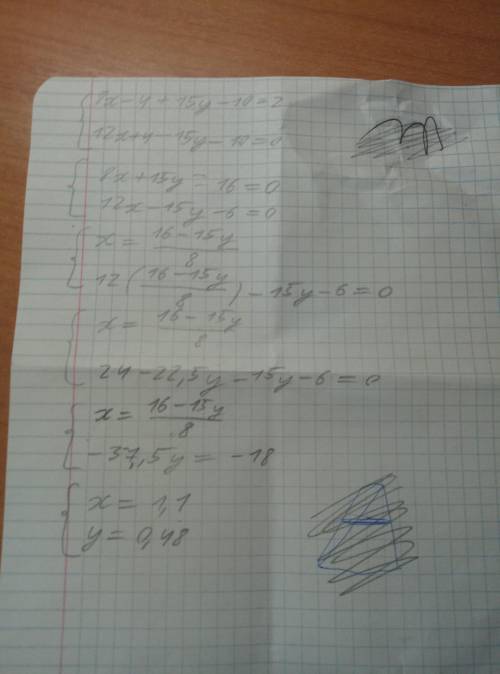 8x-4+15y-10=2
12x+4-15y-10=0
8x+15y-16=0
12x-15y-6=0
x=(16-15y)/8
12((16-15y)/8)-15y-6=0
x=(16-15y)/8
24-22,5y-15y-6=0
x=(16-15y)/8
-37,5y=-18
x=1,1
y=0,48